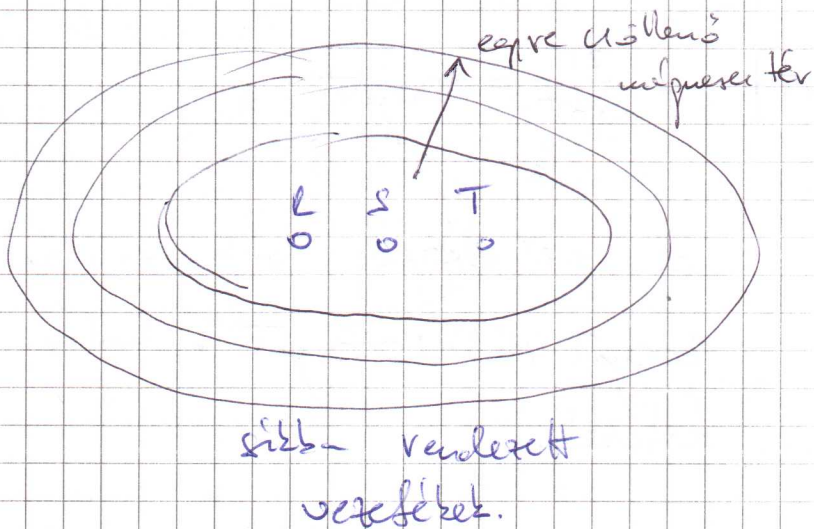 egyre csökkenő
mágneses tér
R S T
síkba rendezett
vezetékek.